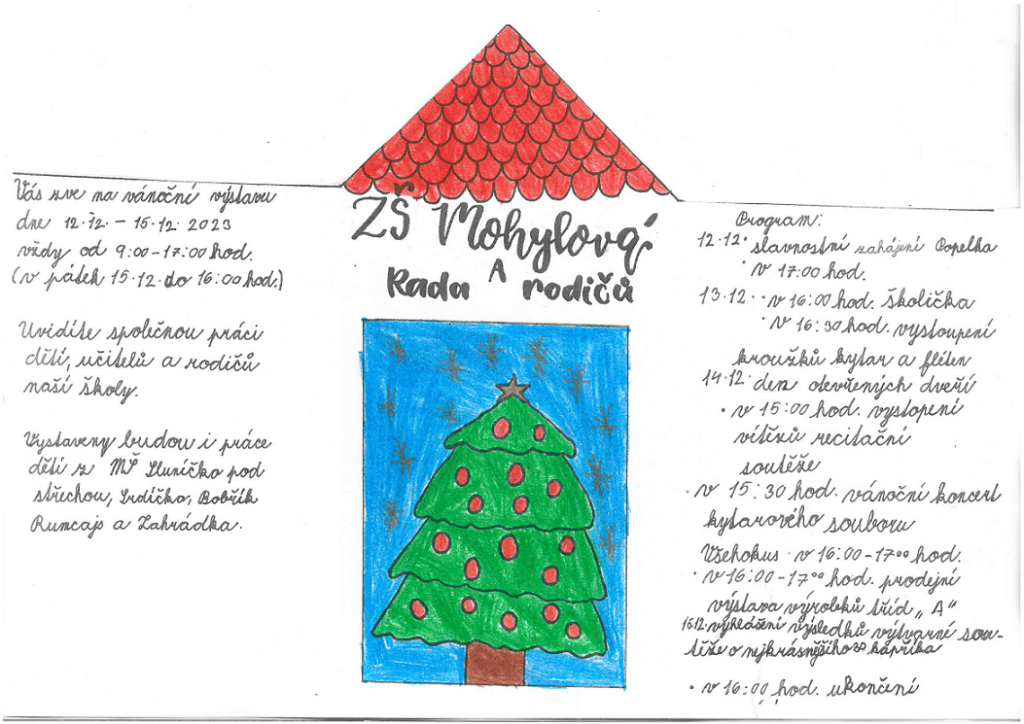 ZŠ Mohylová
A
Rada rodičů
Vás zve na vánoční výstavu
dne 12.12. – 15.12. 2023
vždy od 9:00-17:00 hod.
(v pátek 15.12. do 16:00 hod.)
Uvidíte společnou práci
dětí, učitelů a rodičů
naší školy.
Vystaveny budou i práce
dětí z MŠ Sluníčko pod
střechou, Srdíčko, Bobřík
Rumcajs a Zahrádka.
Program:
12.12. slavnostní zahájení Popelka
• v 17:00 hod.
13.12. • v 16:00 hod. školička
• v 16:30 hod. vystoupení
kroužků kytar a fléten
14.12. den otevřených dveří
• v 15:00 hod. vystopení
vítězů recitační
soutěže
• v 15:30 hod. vánoční koncert
kytarového souboru
Všehokus • v 16:00-17⁰⁰ hod.
• v 16:00-17⁰⁰ hod. prodejní
výstava výrobků tříd „A“
15.12. vyhlášení výsledků výtvarné sou-
těže o nejkrásnějšího 3D kapříka
• v 16:00 hod. ukončení